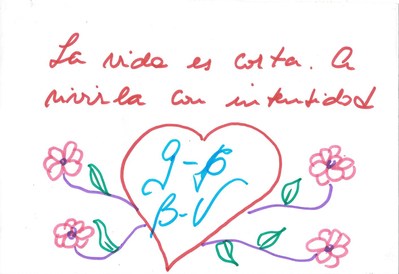 La vida es corta. A
vivirla con intentidad
g-
B-V